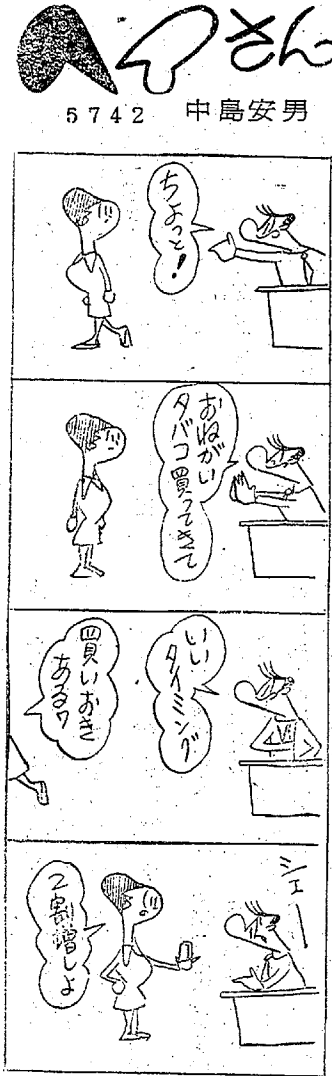 ヘイさん
5742 中島安男
ちょっと!
おねがい
タバコ買ってきて
いい
タイミング
買いおき
あるワ
シェー
2割増しよ